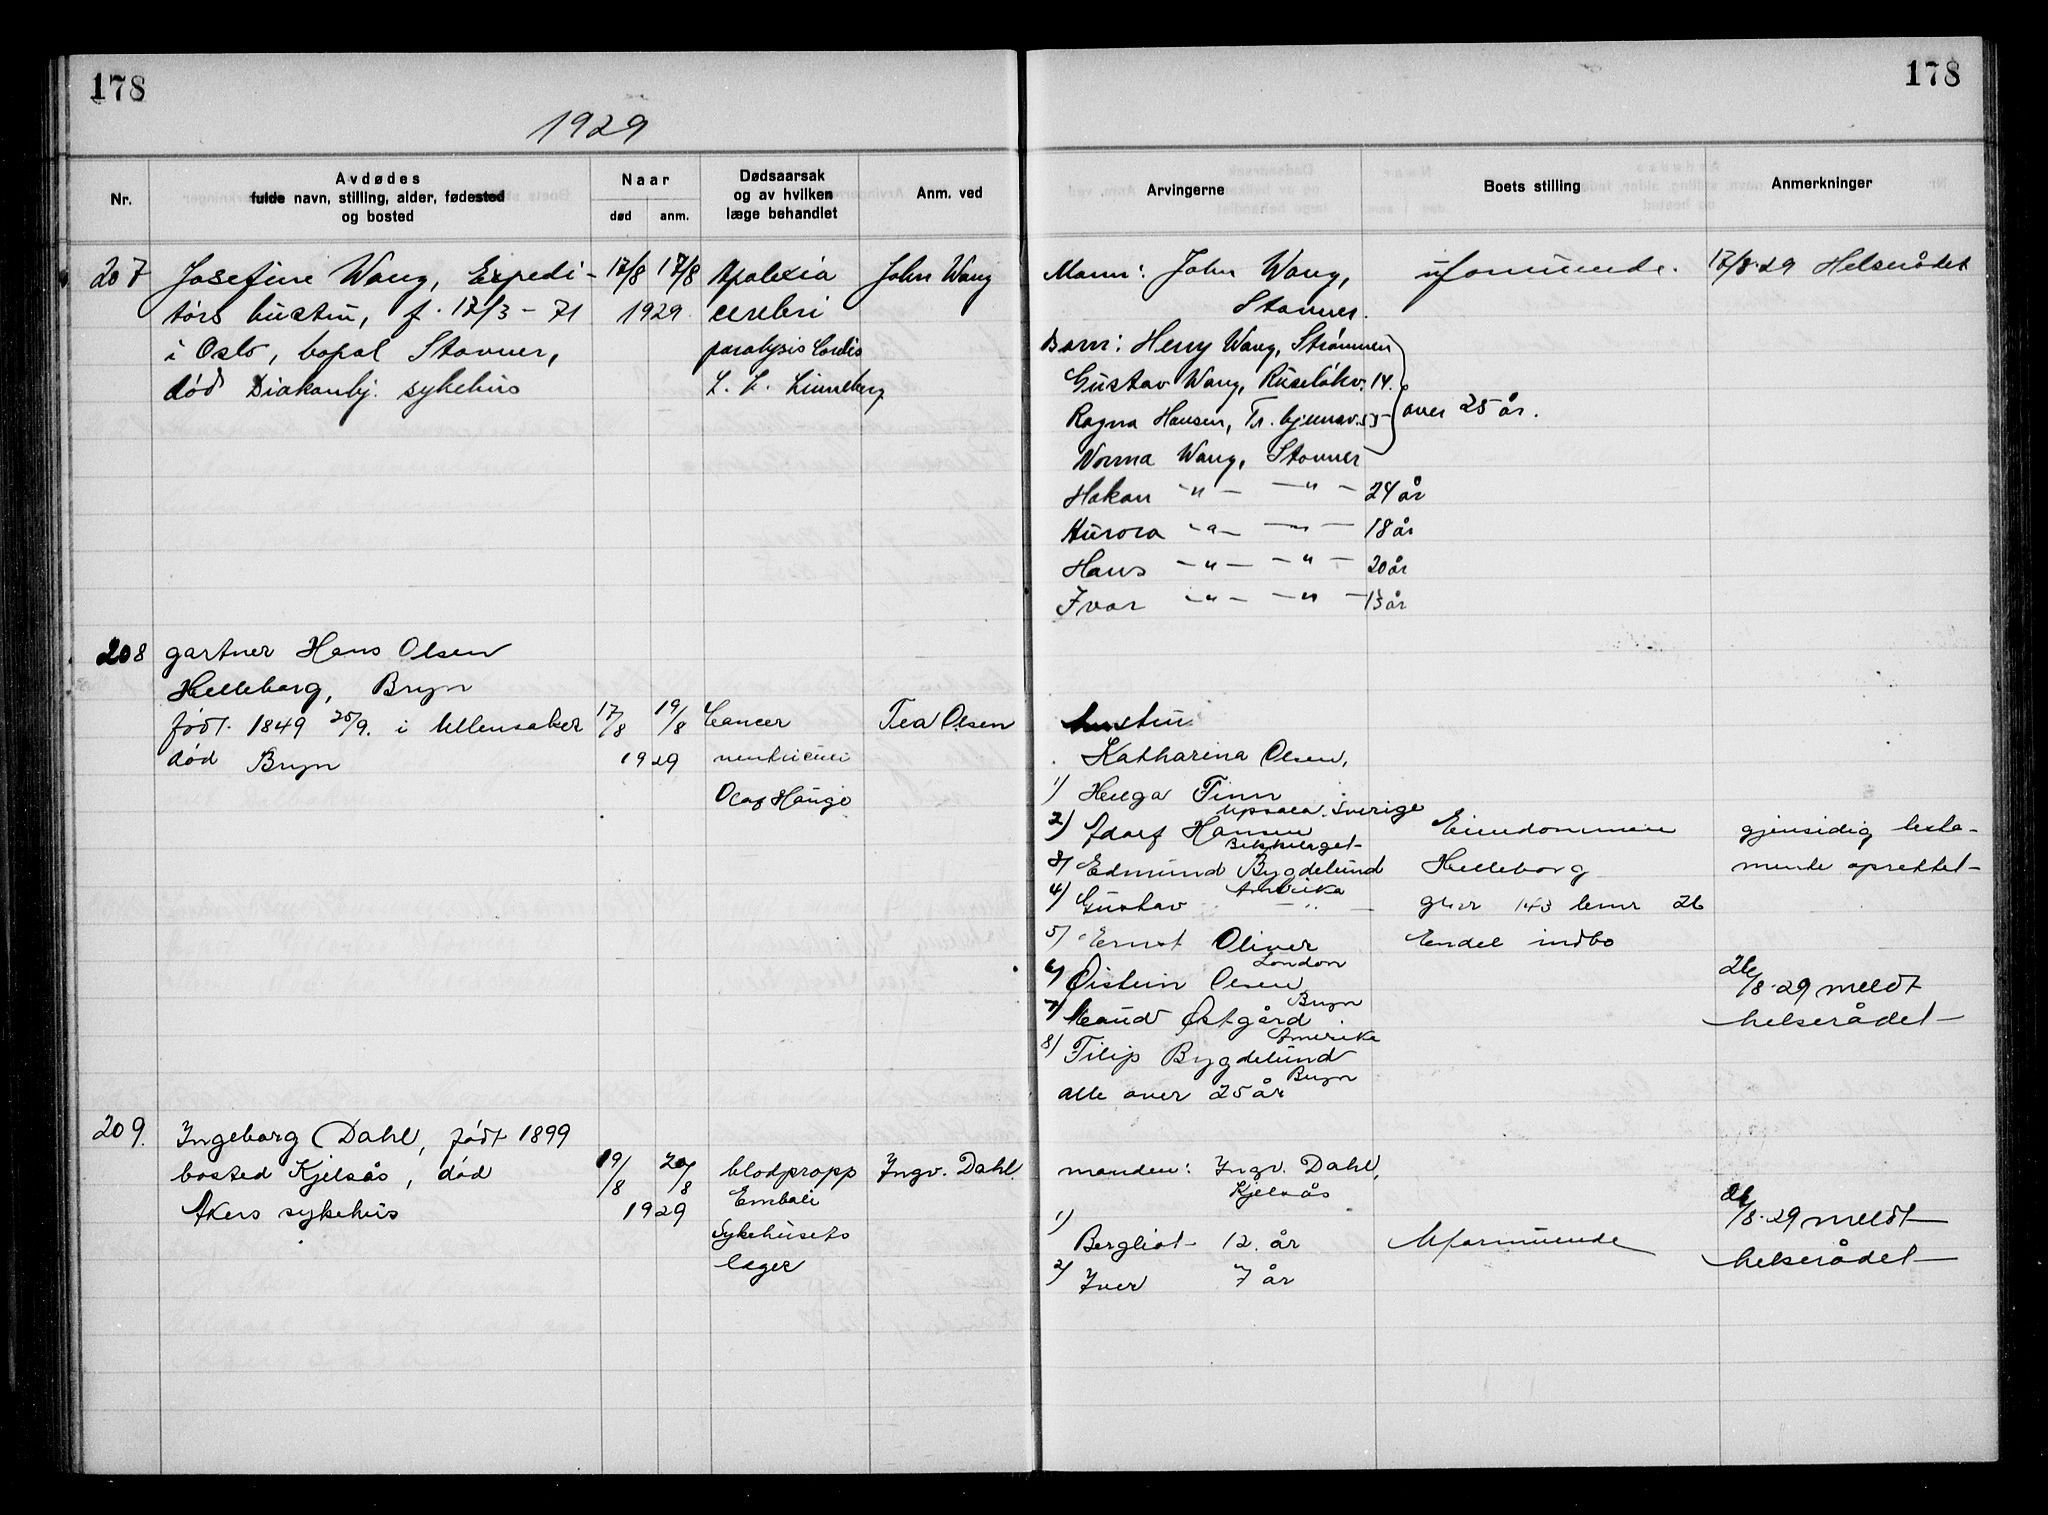 178
178
1929
Nr.
Avdødes
fulde navn, stilling, alder, fødested
og bosted
Naar
død
anm.
Dødsaarsak
og av hvilken
læge behandlet
Anm. ved
Arvingerne
Boets stilling
Anmerkninger
207 Josefine Wang, Expedi- 17/8 17/8 Apolexia John Wang
tørs hustru, f. 17/3 - 71 1929 cerebri
i Oslo, bopæl Stovner, paralysis Cordis
død Diakonhj. sykehus L. L. Linneberg
Mann: John Wang, uformuende. 17/8-29 Helserådet
Stovner.
Barn: Henry Wang, Strømmen
Gustav Wang, Ruseløkv. 14.
Ragna Hansen, Tr. hjemsv. 53 - over 25 år.
Norma Wang, Stovner
Hakon -"- -"- 24 år
Aurora -"- -"- 18 år
Hans -"- -"- 20 år
Ivar -"- -"- 13 år
208 gartner Hans Olsen
Helleborg, Bryn
født 1849 25/9. i Ullensaker 17/8 19/8 Cancer Tea Olsen
død Bryn 1929 ventriculi
Olaf Hauge
hustru
Katharina Olsen,
1) Helga Finn
Upsala. Sverige
2) Adolf Hansen Eiendommen gjensidig testa-
3) Edmund Bygdelund Helleborg mente oprettet
Amerika
4) Gustav - " - gnr 143 bnr 26
5) Ernst Oliver Endel indbo
London
6) Øistein Olsen 26/8-29 meldt
Bryn
7) Maud Østgård helserådet
Amerika
8) Filip Bygdelund
Bryn
alle over 25 år
209. Ingeborg Dahl, født 1899
bosted Kjelsås, død 19/8 20/8 blodpropp Ingv. Dahl.
Akers sykehus 1929 Emboli
Sykehusets
læger
manden: Ingv. Dahl,
Kjelsås
26/8-29 meldt
1) Bergliot 12 år Uformuende helserådet
2) Iver 7 år